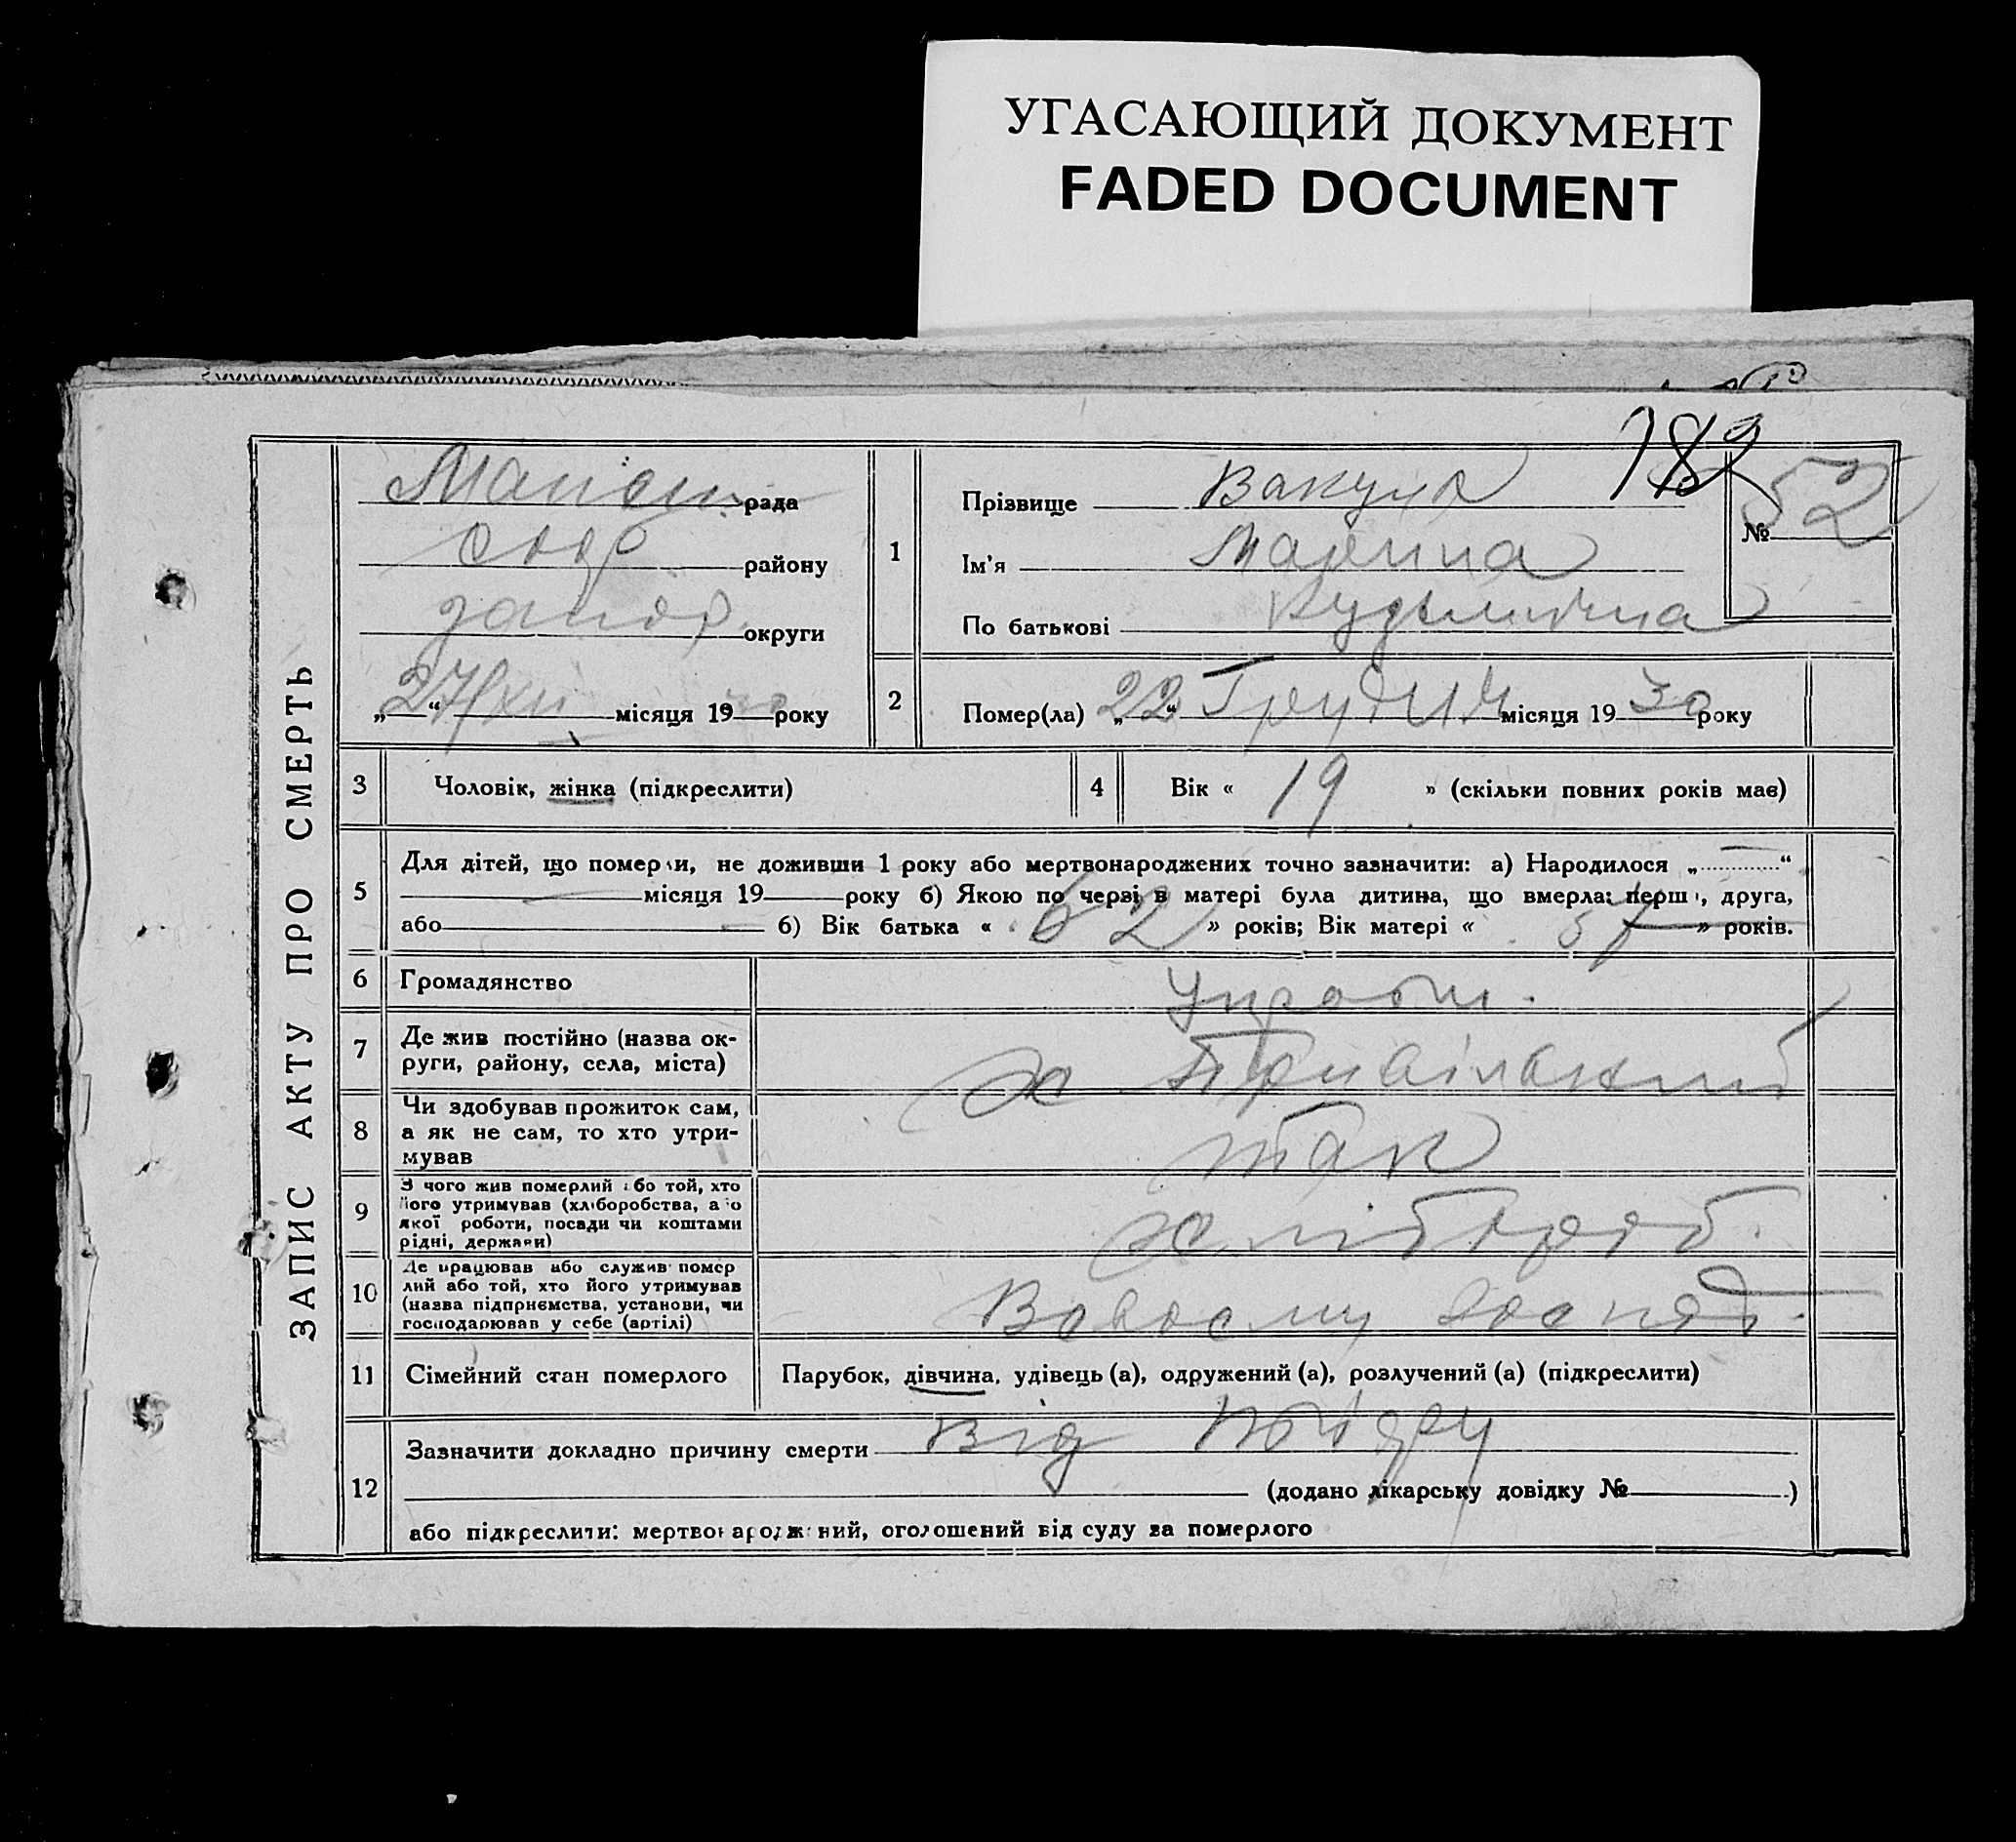 УГАСАЮЩИЙ ДОКУМЕНТ
FADED DOCUMENT
182
ЗАПИС АКТУ ПРО СМЕРТЬ
рада
району
запор. округи
„27/XII“ місяця 19 року
1
Прізвище Вакула
Ім'я Марина
По батькові Кузьмівна
№ 52
2
Помер(ла) „22“ Грудня місяця 1930 року
3 Чоловік, жінка (підкреслити)
4 Вік « 19 » (скільки повних років має)
5
Для дітей, що померли, не доживши 1 року або мертвонароджених точно зазначити: а) Народилося „ “
місяця 19 року б) Якою по черзі в матері була дитина, що вмерла: перша, друга,
або б) Вік батька « 62 » років; Вік матері « 57 » років.
6 Громадянство
7 Де жив постійно (назва ок-
руги, району, села, міста)
х Привільний
8 Чи здобував прожиток сам,
а як не сам, то хто утри-
мував
так
9 З чого жив померлий або той, хто
його утримував (хліборобства, або
якої роботи, посади чи коштами
рідні, держави)
хлібороб.
10 Де працював або служив помер
лий або той, хто його утримував
(назва підприємства, установи, чи
господарював у себе (артілі)
В своєму господ.
11 Сімейний стан померлого Парубок, дівчина, удівець (а), одружений (а), розлучений (а) (підкреслити)
12
Зазначити докладно причину смерти від
(додано лікарську довідку № )
або підкреслити: мертвонароджений, оголошений від суду за померлого